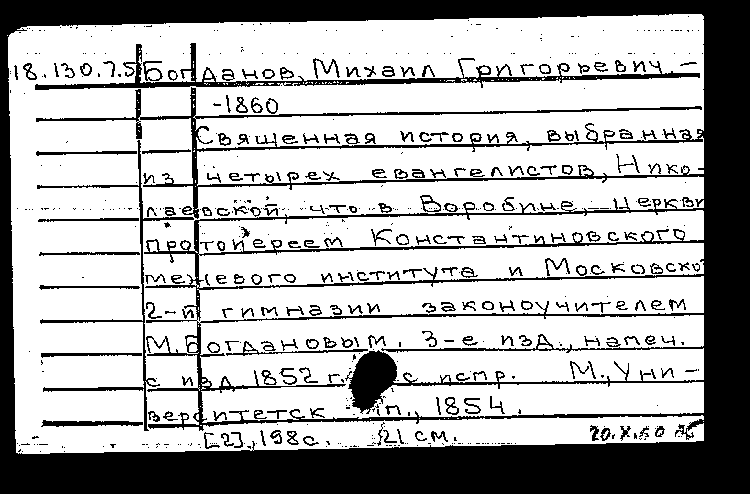 18.130.7.5 Богданов, Михаил Григорьевич. –
-1860
Священная история, выбранная
из четырех евангелистов, Нико-
лаевской, что в Воробине, церкви
протоиереем Константиновского
межевого института и Московской
2-й гимназии законоучителем
М. Богдановым. 3-е изд., напеч.
с изд. 1852 г. с испр. М., Уни-
верситетск тип., 1854.
[2], 198 с. 21 см. 20.X.60